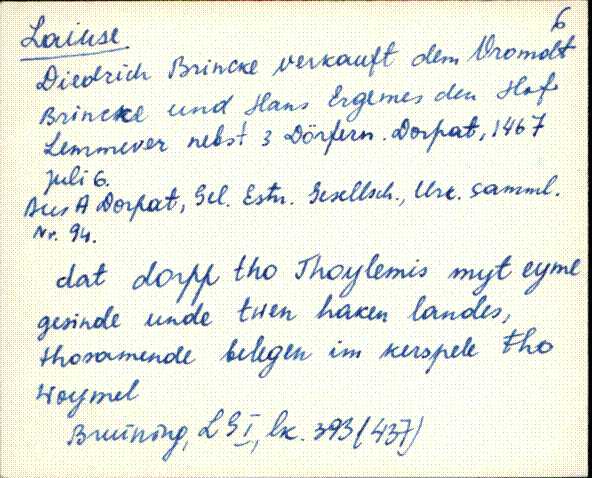 6
Laiuse
Diedrich Brincke verkauft dem Vromolt
Brincke und Hans Ergemes den Hof
Lemmever nebst 3 Dörfern. Dorpat, 1467
Juli 6.
Aus A Dorpat, Gel. Estn. Gesellsch., Urk. Samml.
Nr. 94.
dat dorpp tho Thoylemis myt eyme
gesinde unde twen haken landes,
thosamende belegen im kerspele tho
Woymel
Bruining, LG I, lk. 393 (437)